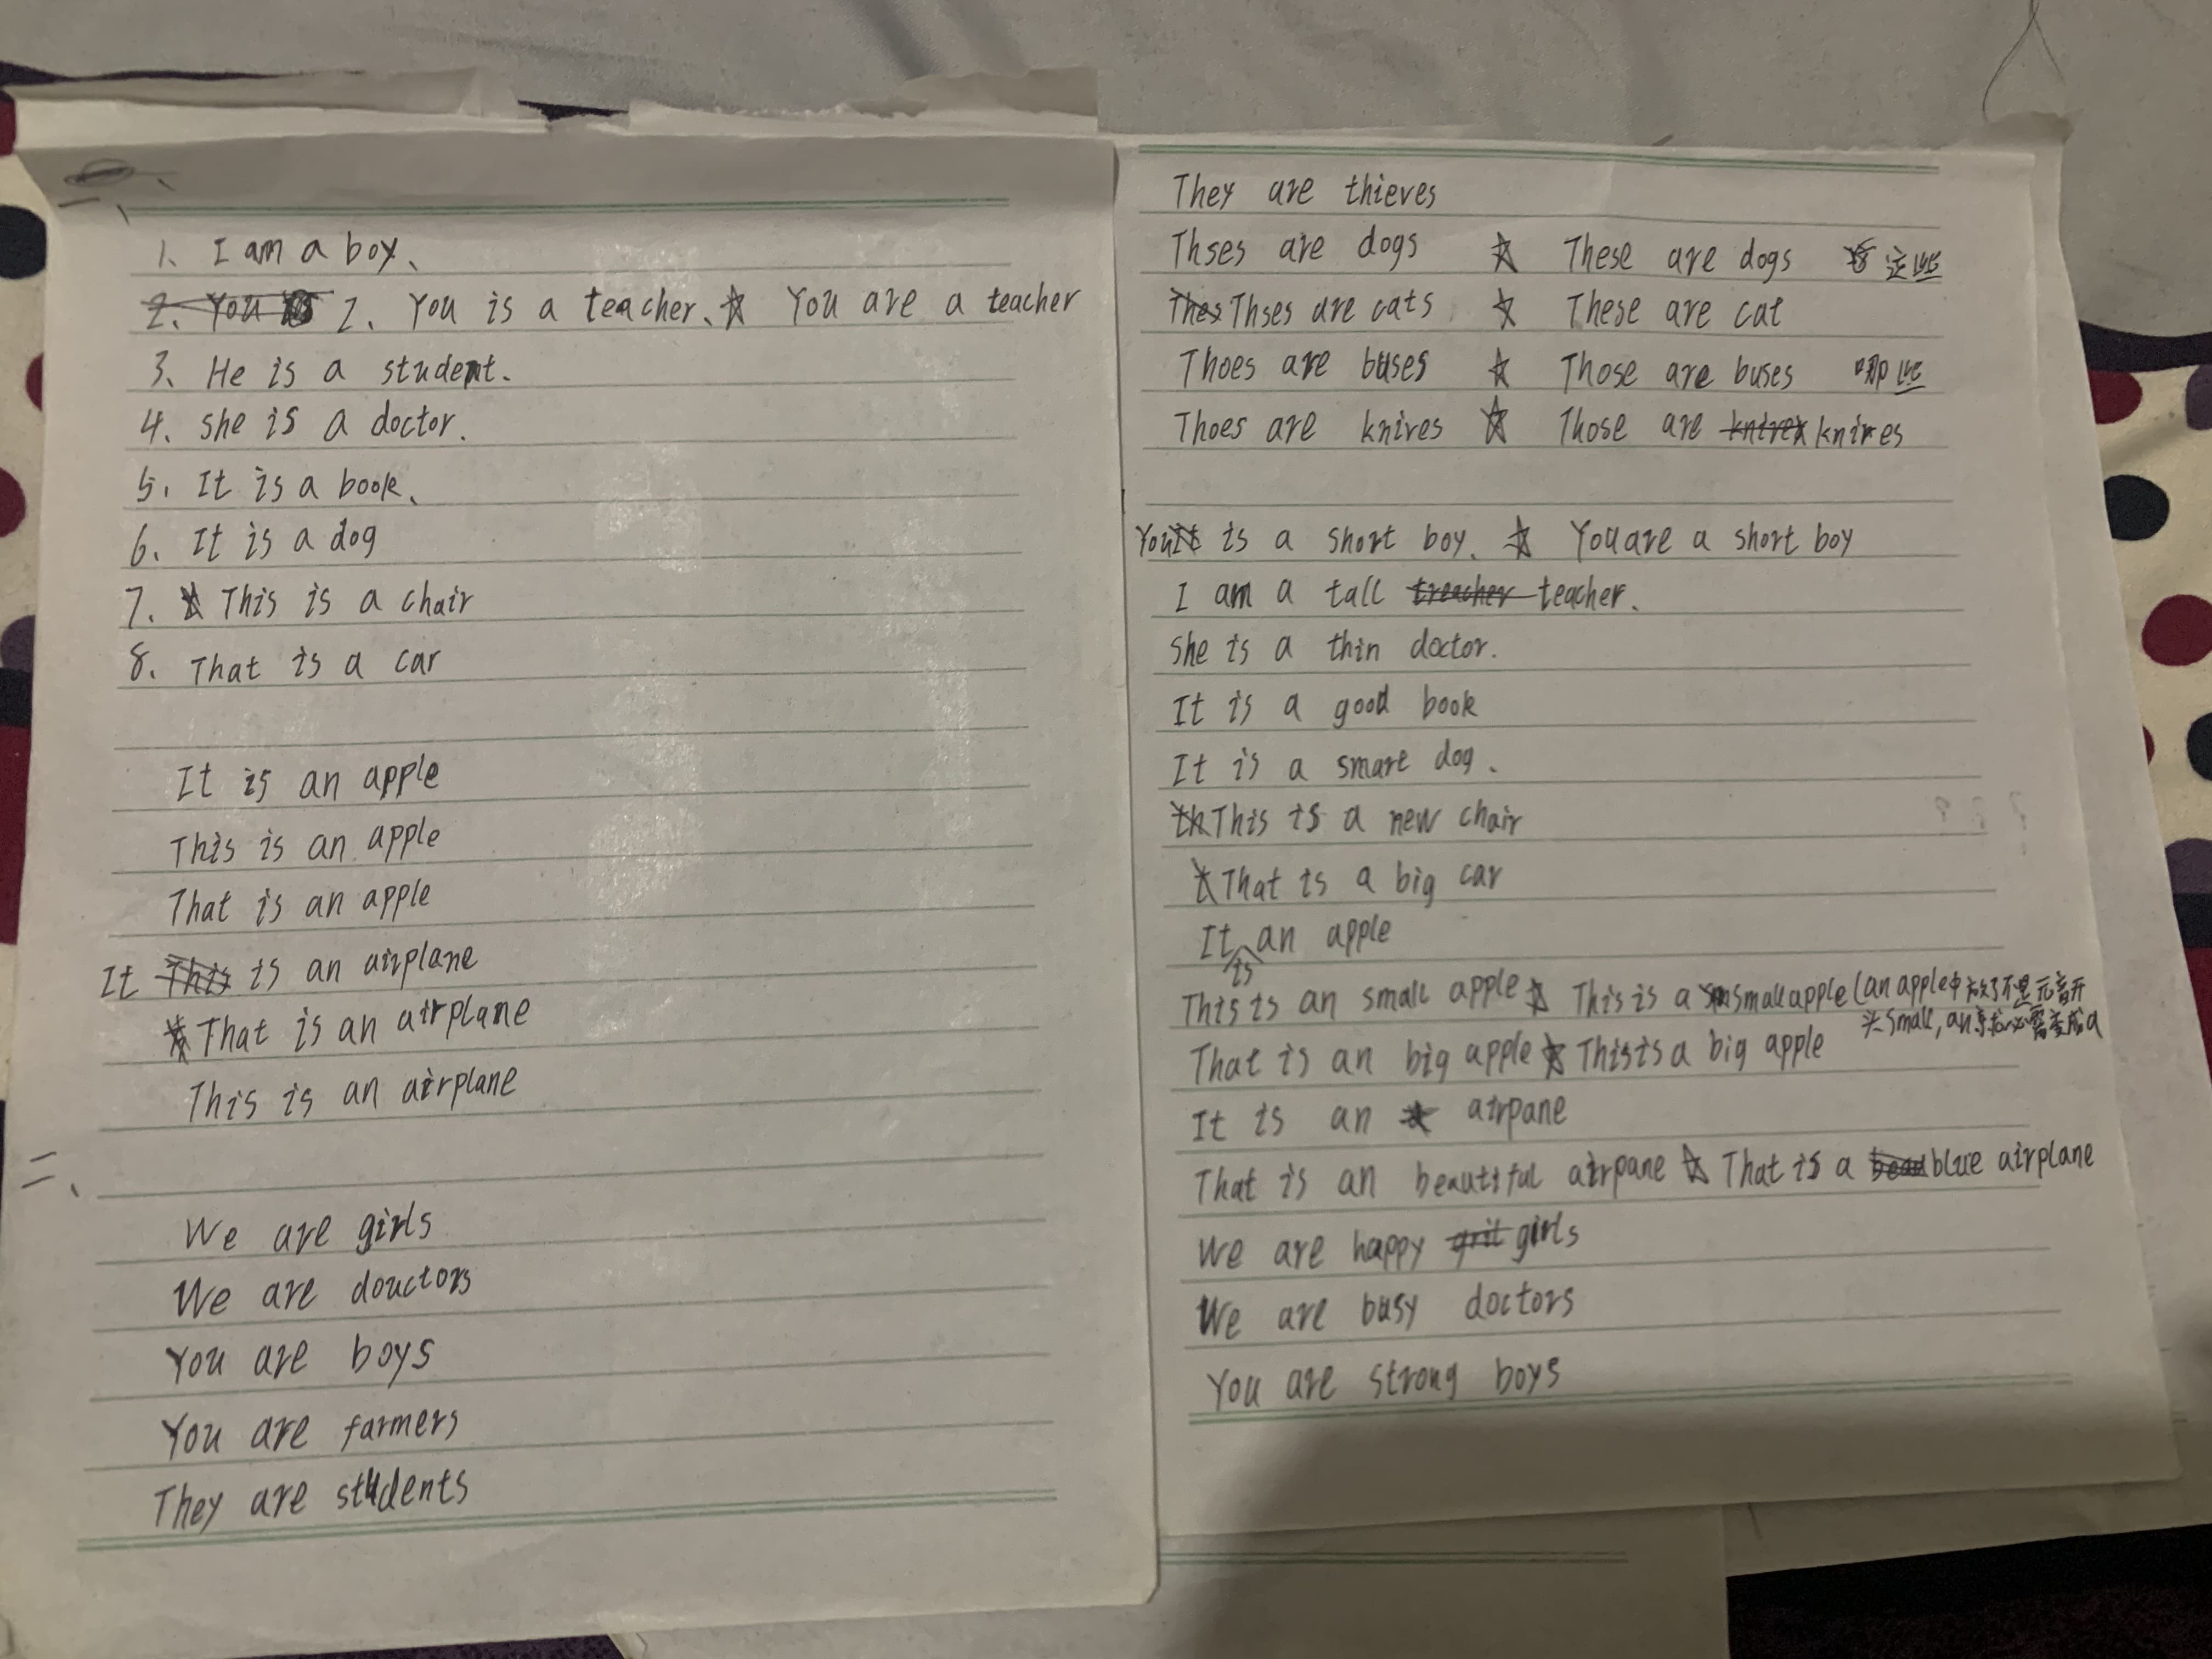 一、
1、I am a boy、
2、You is a teacher、☆ You are a teacher
3、He is a student.
4、she is a doctor.
5、It is a book、
6、It is a dog
7、This is a chair
8、That is a car
It is an apple
This is an apple
That is an apple
It is an airplane
That is an airplane
This is an airplane
二、
We are girls
We are douctors
You are boys
You are farmers
They are students
They are thieves
Thses are dogs ☆ These are dogs 这些
Thses are cats ☆ These are cat
Thoes are buses ☆ Those are buses 哪些
Thoes are knives ☆ Those are knives
You is a short boy、☆ You are a short boy
I am a tall teacher.
She is a thin doctor.
It is a good book
It is a smart dog.
This is a new chair
That is a big car
It is an apple
This is an small apple ☆ This is a small apple (an apple中放了不是元音开
头small, an 必需变成a
That is an big apple ☆ This is a big apple
It is an airpane
That is an beautiful airpane ☆ That is a blue airplane
We are happy girls
We are busy doctors
You are strong boys